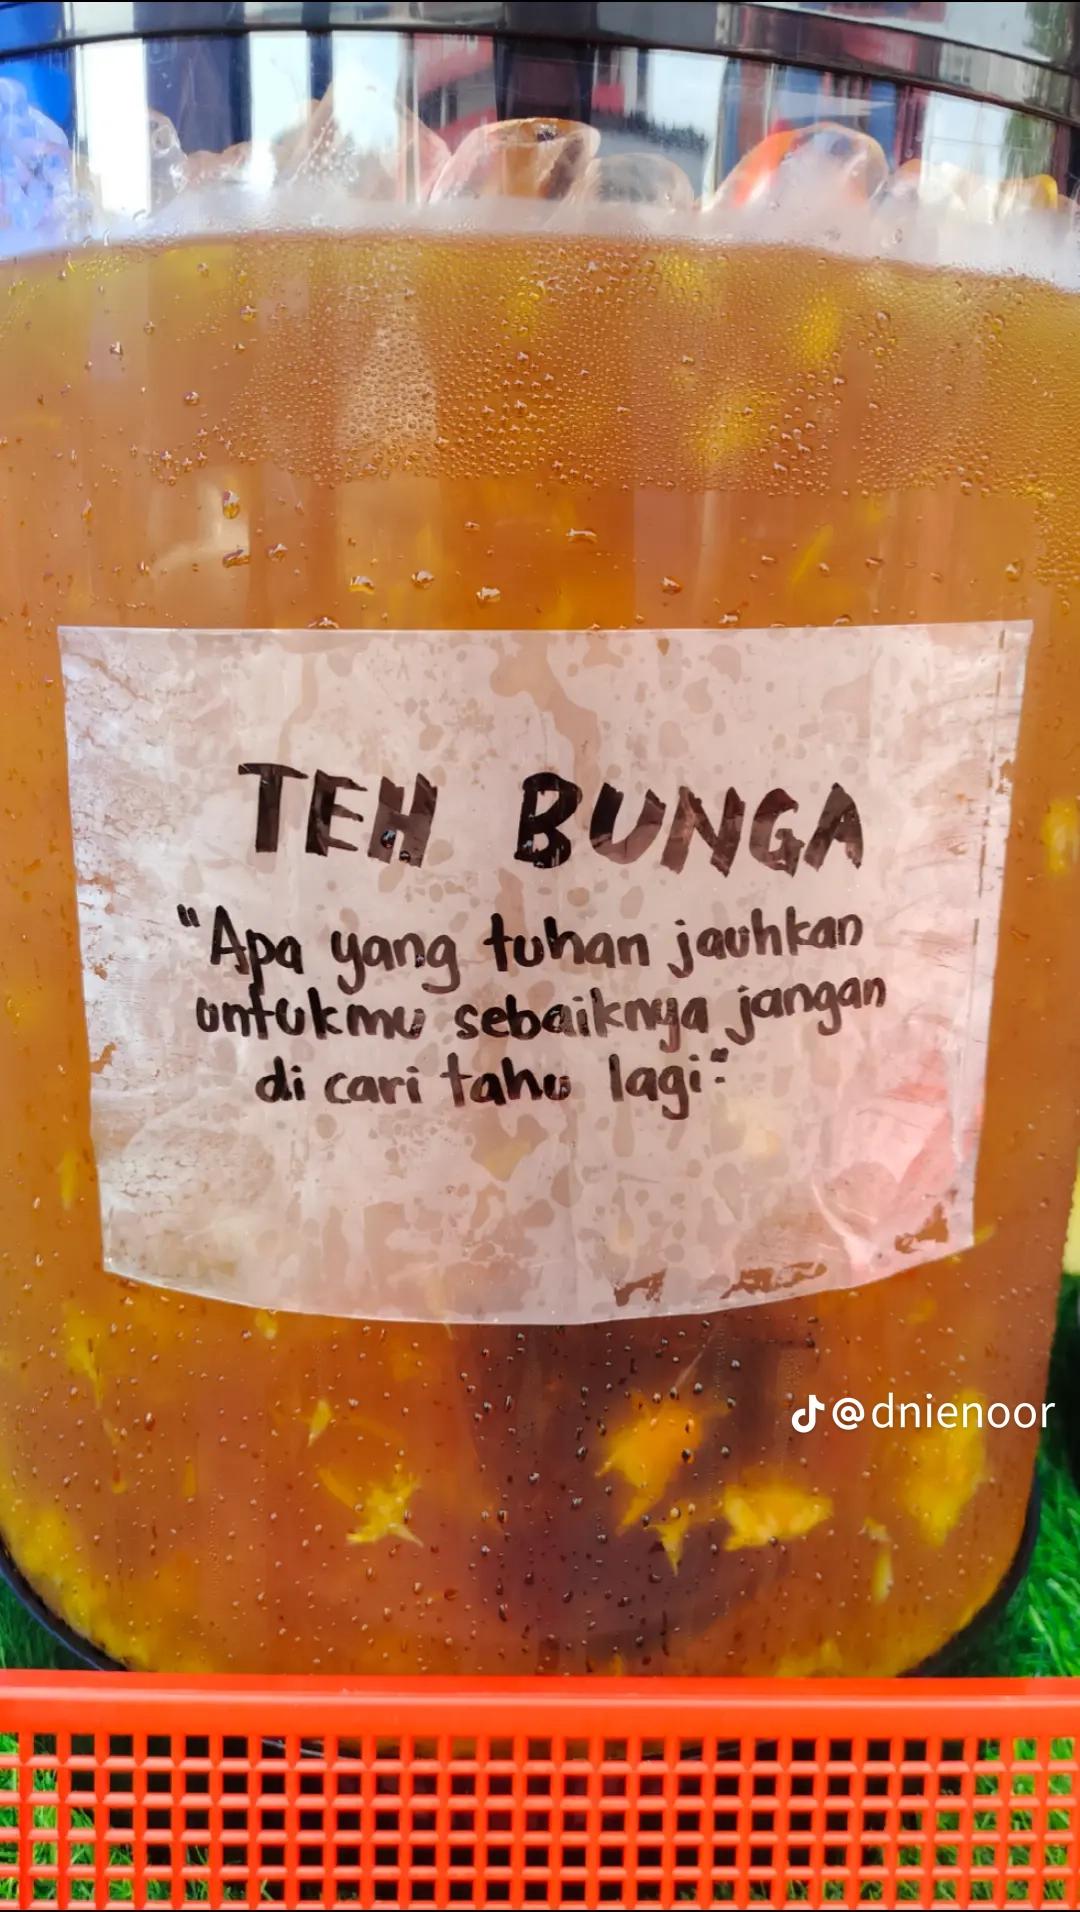 TEH BUNGA
"Apa yang tuhan jauhkan
untukmu sebaiknya jangan
di cari tahu lagi."
@dnienoor